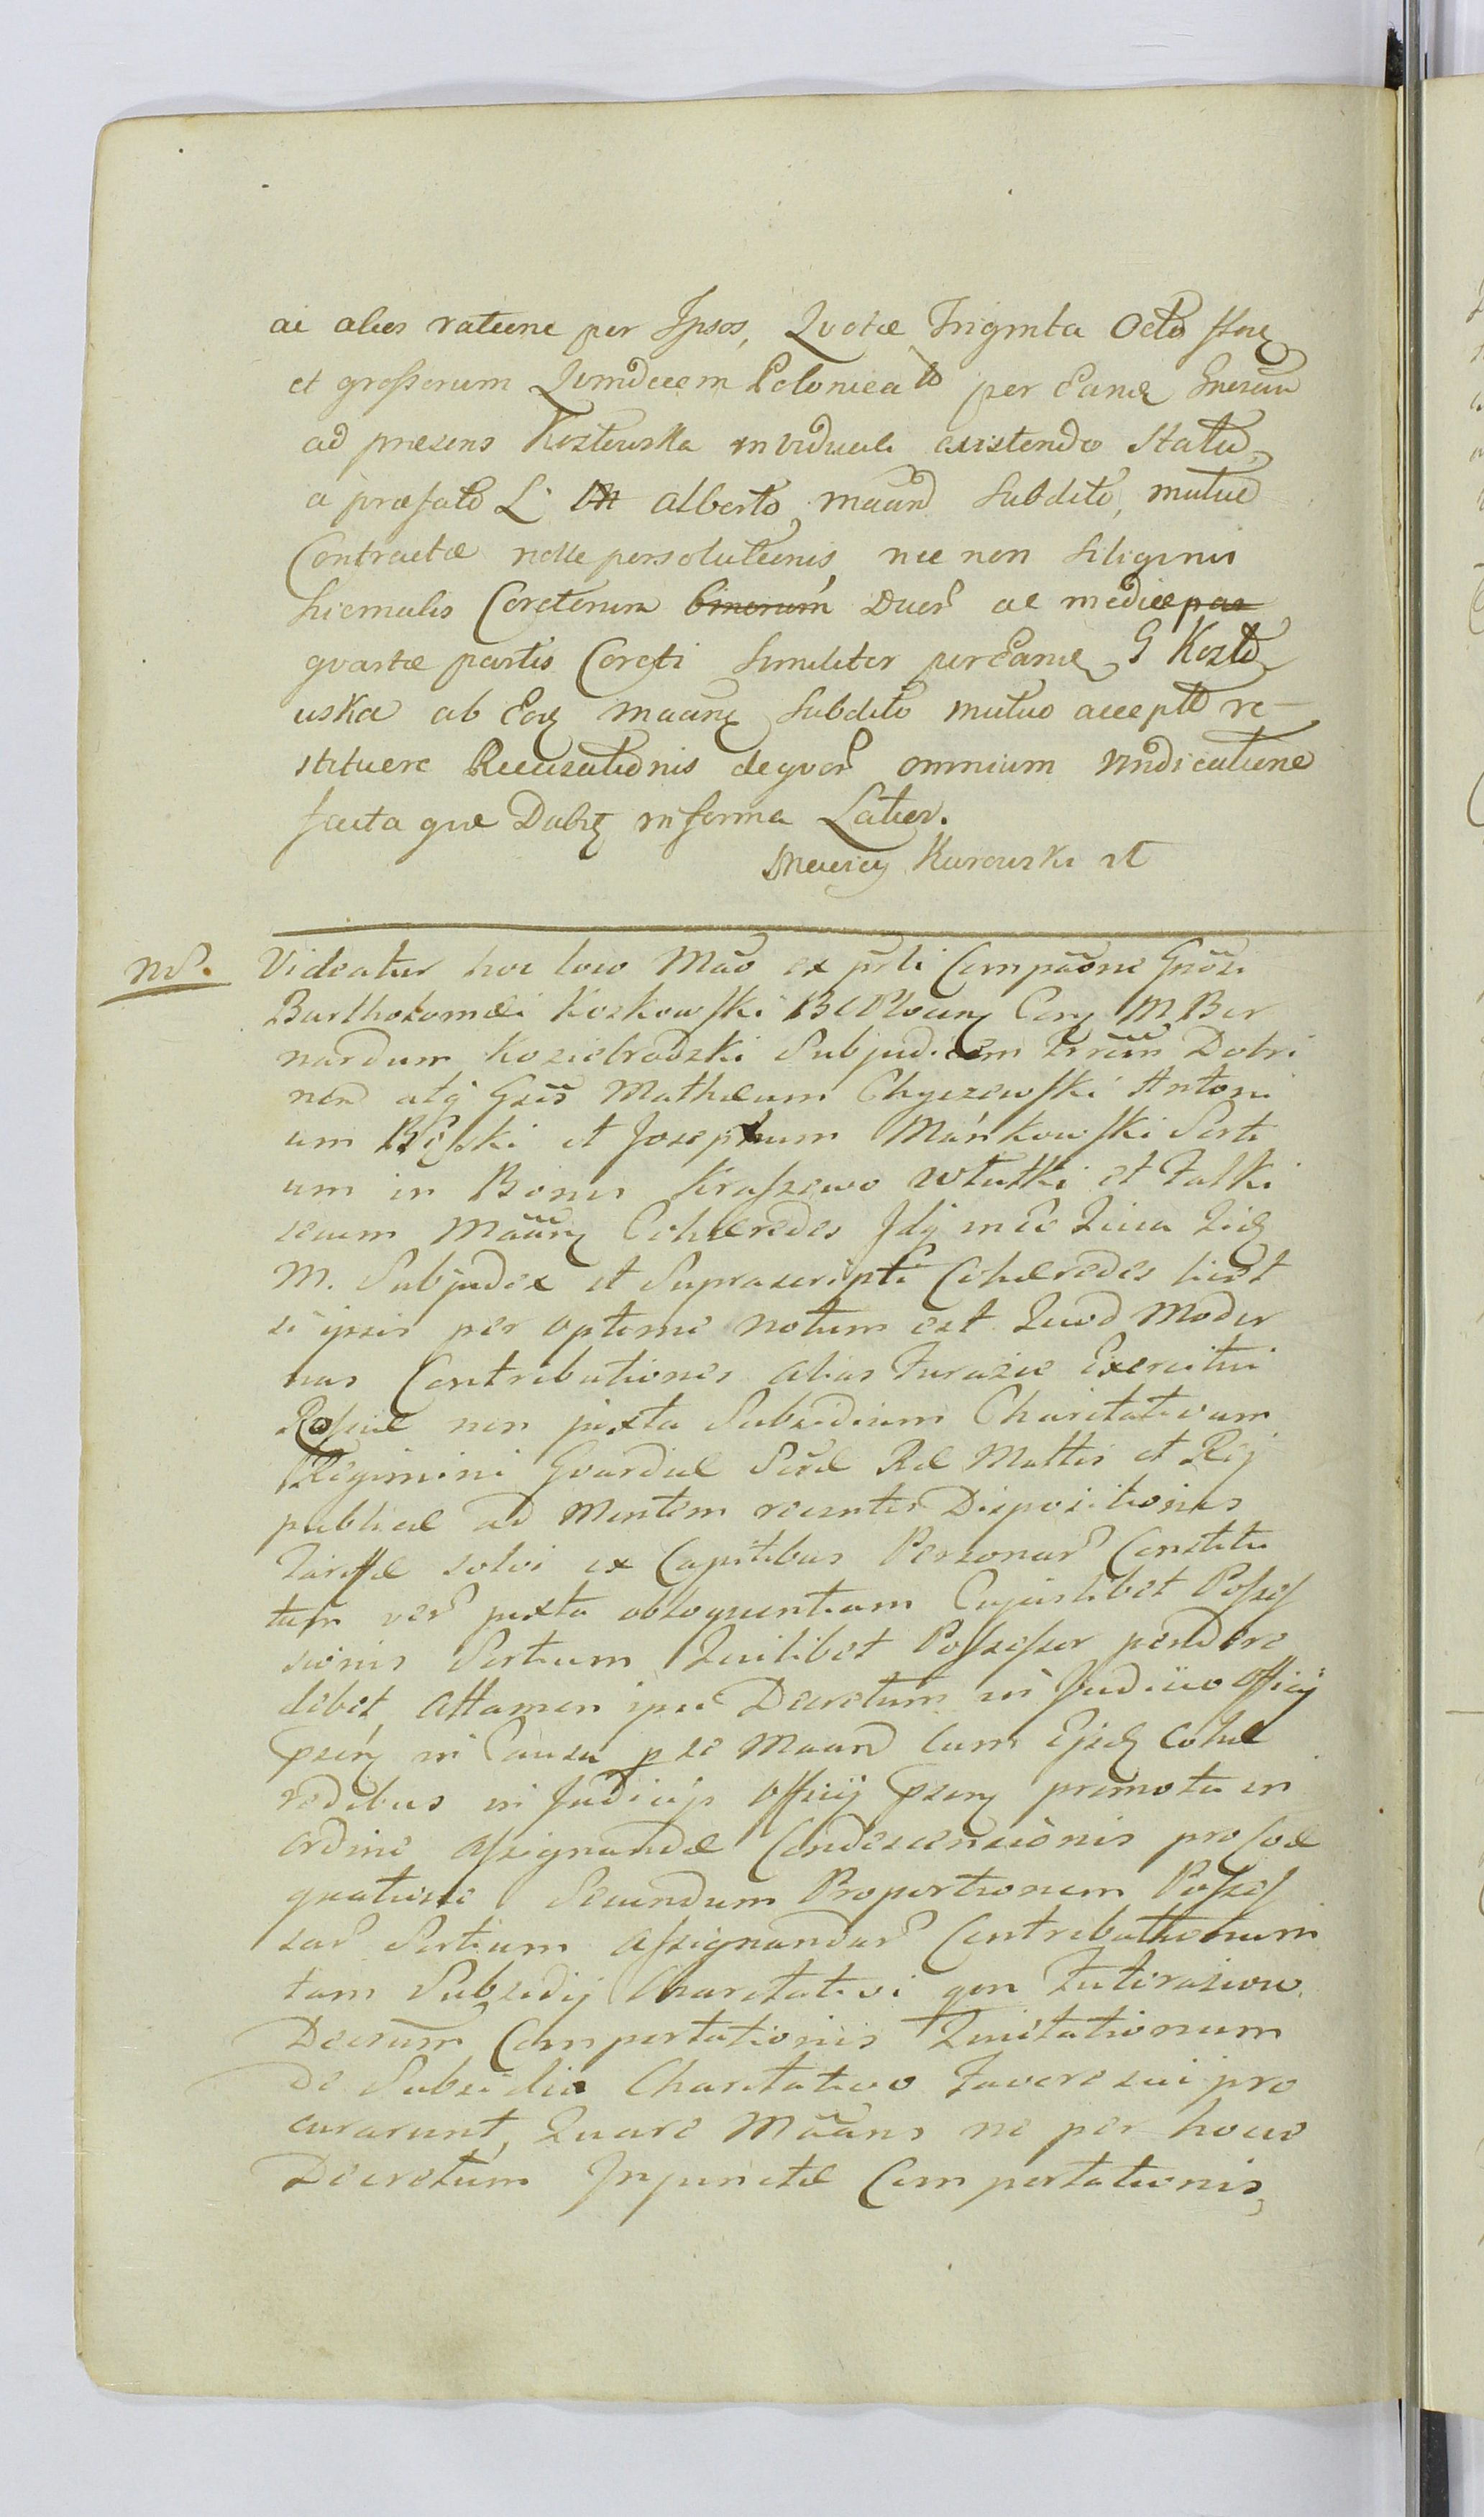 ai alias ratione per Ipsos, Quotæ Triginta Octo flor
et grossorum Quindecem Polonica per Eand Gnosam
ad præsens Kozłowska in viduali existendo Statu,
a præfato L. Alberto, maand Subdito, mutuo
Contractæ nolle persolutionis, nec non Siliginis
hiemalis Coretorum binorum Duor ac mediæ par
qvartæ partis Coreti Similiter per Eand G Kozło
wska ab Eod maanď Subdito mutuo accepto re-
stituere Recusationis deqvor omnium vindicatione
factaque Dabit in forma Latior.
Maciey Kurowski
Nō. Videatur hoc loco Mão ex pārti Compãone Gnõsi
Bartholomæi Koskowski Cong M Ber
nardum Koziebrodzki Subjudicem Trrãm Dobri
nen atq Gños Mathæum Chyczewski Antoni
um et Josephum Mańkowski Sorti
um in Bonis Kraszewo Witułki et Falki
seum Maanđ Cohæredes Idq in Eo Quia Licet
M. Subjudex et Suprascripti Cohæredes licet
si ipsis per optime notum est Quod Moder
nas Contributiones alias Furazie Exercitui
Rossiæ non juxta Subsidium Charitativum
Regimini Gvardiæ Seræ Ræ Mattis et Rei
publicæ ad Mentem recentis Dispositionis
Tariffæ solvi ex Capitibus Personar Constitu
tum vero juxta obloquentiam Cujuslibet Posses
sionis Sortium Quilibet Possessor pendere
debet, Attamen ipsi Decretum in Judicio Officij
Psenť in Causa p se Maand cum Ejsd Cohæ
redibus in Judicijs Officij Psenť promota in
ordine assignandæ Condescensionis pro coæ
quatione Secundum Proportionem Posses
sar Sortium assignandar Contributionum
tam Subsidij Charitativi qvn Futerazion
Decrum Comportationis Quietationum
De Subsidio Charitativo Favore sui pro
curarunt, Quare Mãans ne per hocce
Decretum Injunctæ Comportationis